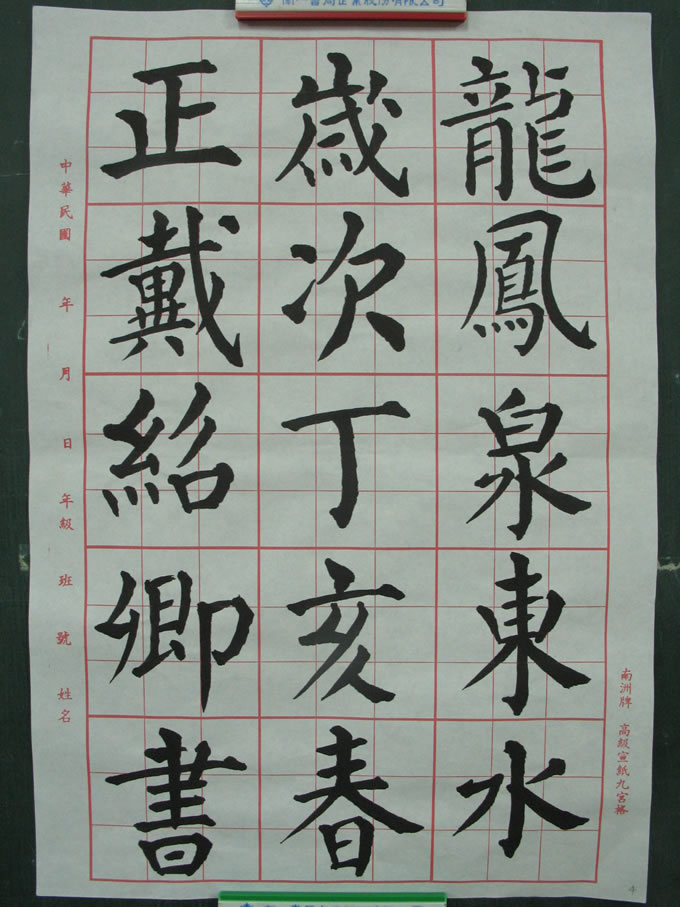 龍鳳泉東水
歲次丁亥春
正戴紹卿書
中華民國 年 月 日 年級 班 號 姓名
南洲牌 高級宣紙九宮格
4